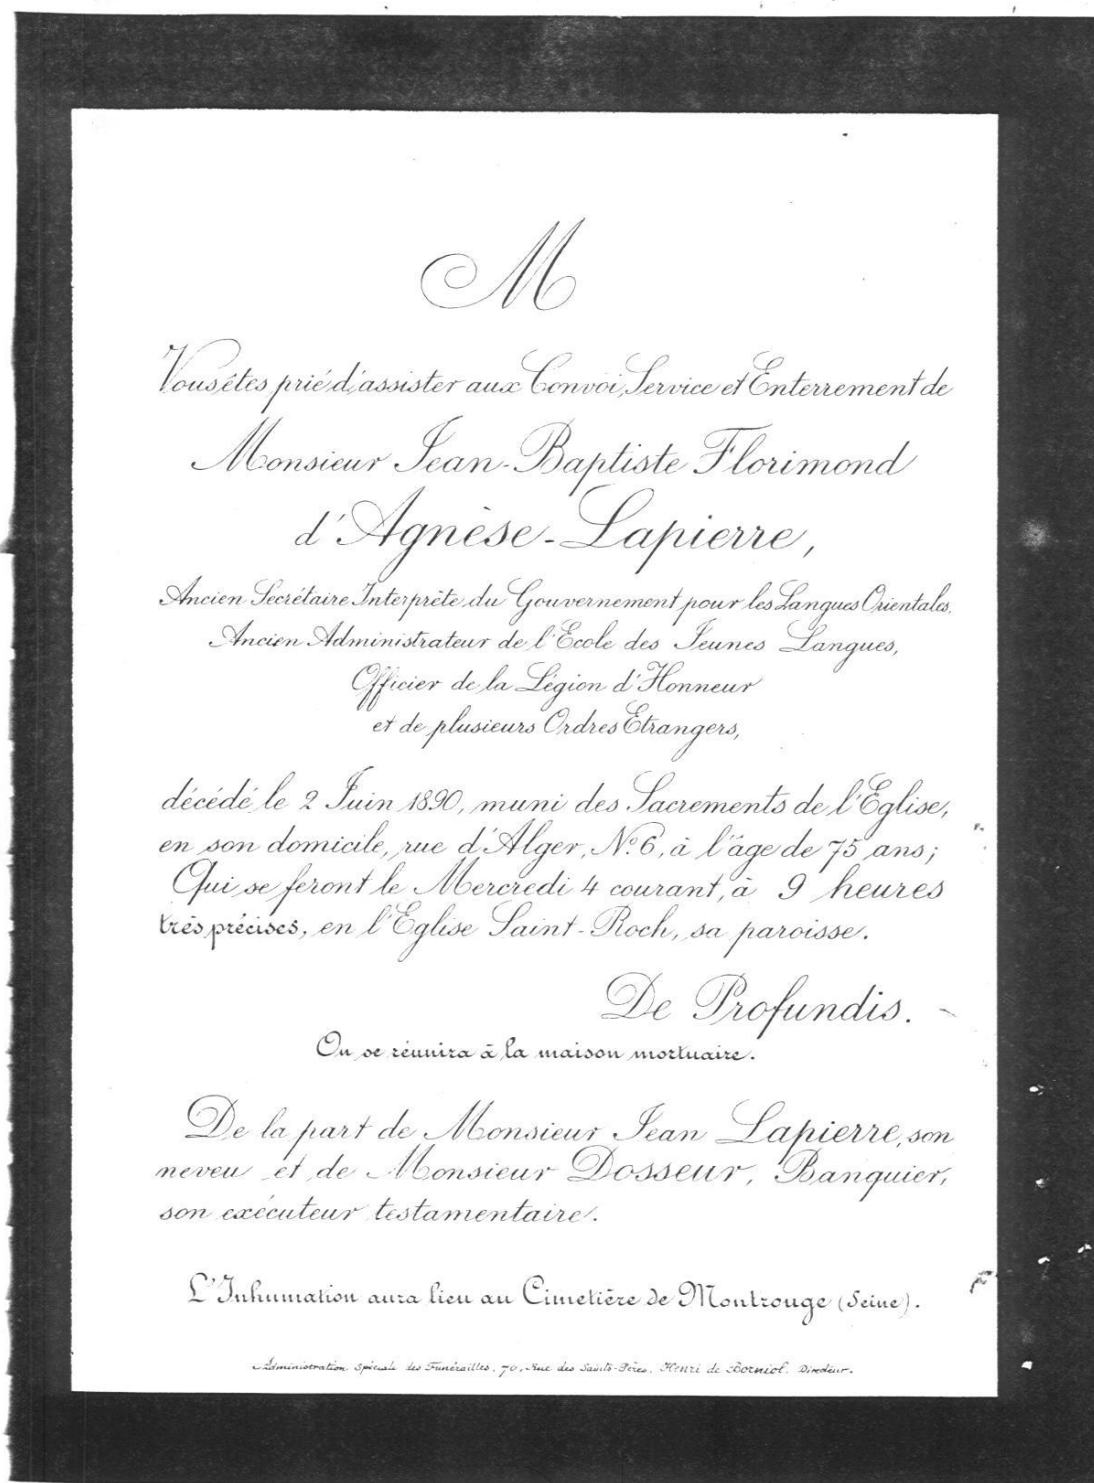 M
Vous êtes prié d'assister aux Convoi, Service et Enterrement de
Monsieur Jean-Baptiste Florimond
d'Agnèse-Lapierre,
Ancien Secrétaire Interprète du Gouvernement pour les Langues Orientales.
Ancien Administrateur de l'Ecole des Jeunes Langues,
Officier de la Légion d'Honneur
et de plusieurs Ordres Etrangers,
décédé le 2 Juin 1890, muni des Sacrements de l'Eglise,
en son domicile, rue d'Alger, N.º 6, à l'âge de 75 ans;
Qui se feront le Mercredi 4 courant, à 9 heures
très précises, en l'Eglise Saint-Roch, sa paroisse.
De Profundis.
On se réunira à la maison mortuaire.
De la part de Monsieur Jean Lapierre, son
neveu et de Monsieur Dosseur, Banquier,
son exécuteur testamentaire.
L'Inhumation aura lieu au Cimetière de Montrouge (Seine).
Administration Spéciale des Funérailles, 70, Rue des Saints-Pères. Henri de Borniol. Directeur.